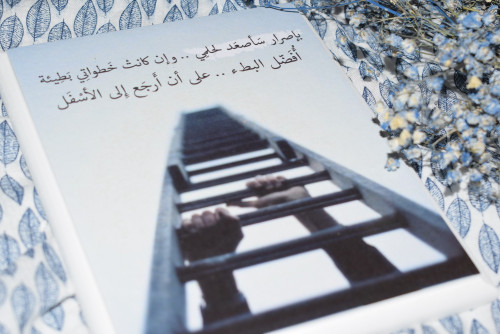 بإصرار سأصعَد لحلمي .. وإن كانتْ خَطواتي بَطيئة
أُفضّل البطء .. على أن أرجَع إلى الأسْفَل